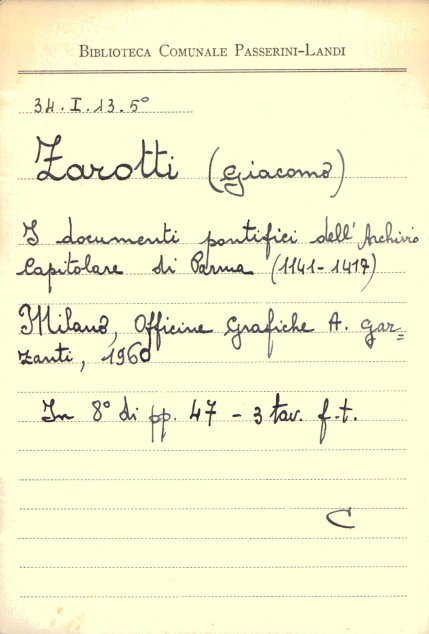 BIBLIOTECA COMUNALE PASSERINI-LANDI
34.I.13.5°
Zarotti (Giacomo)
I documenti pontifici dell'Archivio
Capitolare di Parma (1141-1417)
Milano, Officine Grafiche A. Gar=
zanti, 1960
In 8° di pp. 47 - 3 tav. f.t.
C